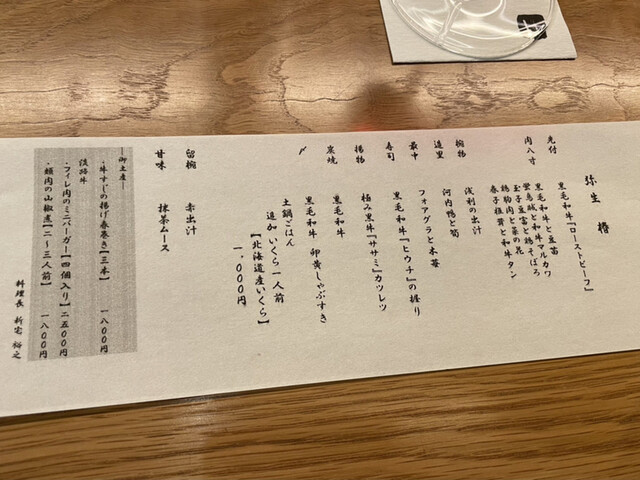 弥生椿
先付
黒毛和牛『ローストビーフ』
肉八寸
黒毛和牛と豆苗
黒鳥城と和牛マルカワ
玉子豆富と鶏そぼろ
鶏胸肉と菜の花
春子椎茸と和牛タン
椀物
浅利の出汁
河内鴨と筍
造里
フォアグラと木苺
最中
黒毛和牛『ヒウチ』の握り
寿司
揚物
極み黒牛『ササミ』カツレツ
炭焼
黒毛和牛
〆
黒毛和牛 卵黄しゃぶすき
土鍋ごはん
追加いくら一人前
【北海道産いくら】
一、000円
留椀
赤出汁
甘味
抹茶ムース
―御土産―
・牛すじの揚げ春巻き【三本】 一八00円
淡路牛
・フィレ肉のミニバーガー【四個入り】二五00円
・頬肉の山椒煮【二～三人前】 一八00円
料理長 新宅 裕之